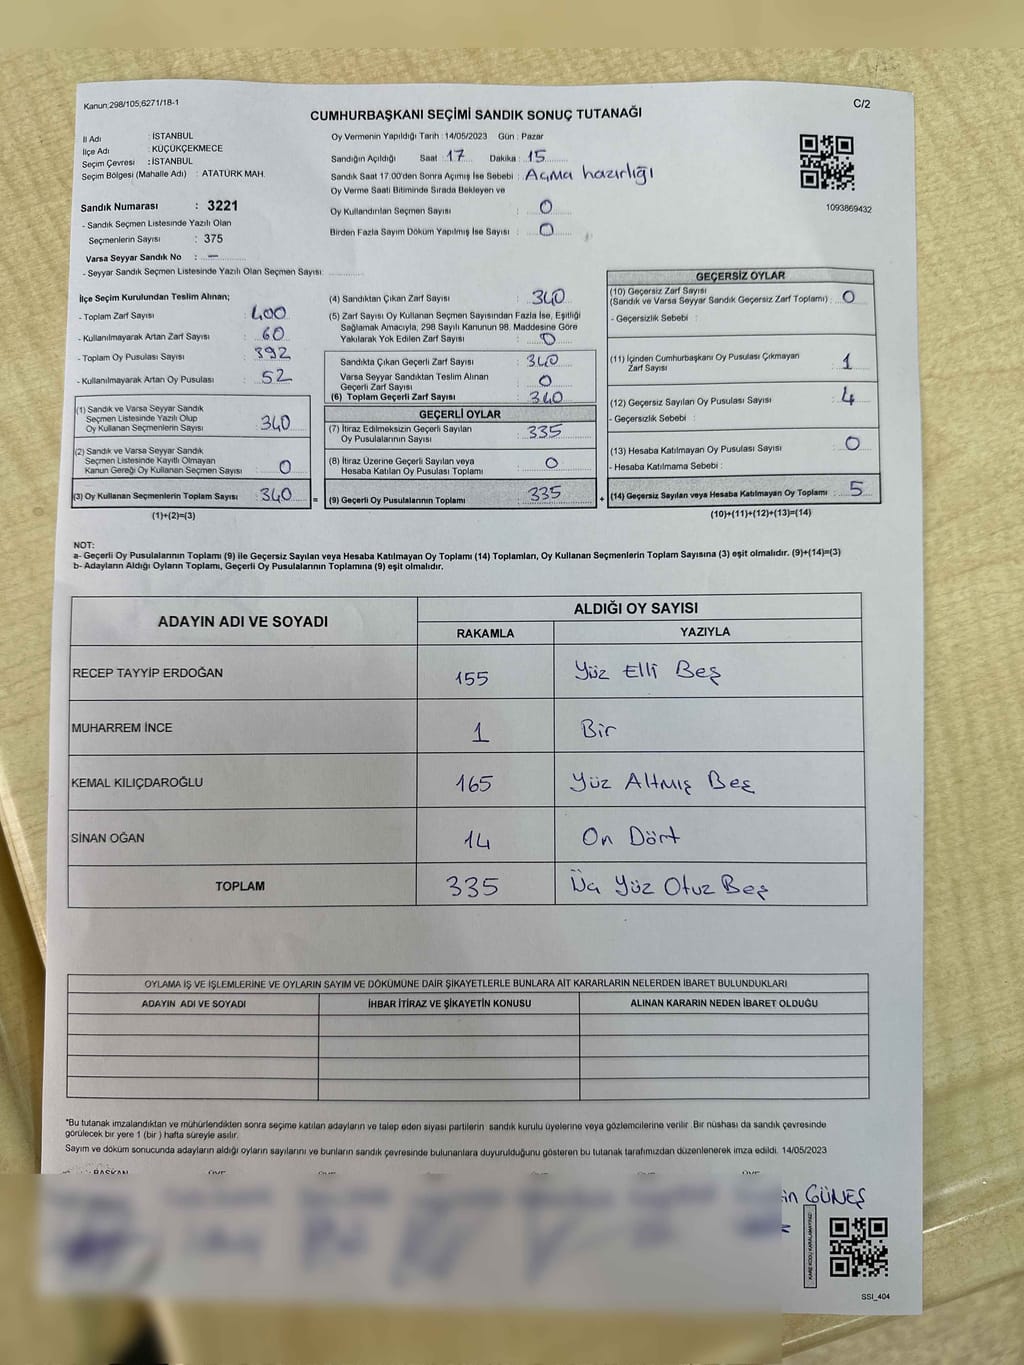 Kanun:298/105,6271/18-1
C/2
CUMHURBAŞKANI SEÇİMİ SANDIK SONUÇ TUTANAĞI
İl Adı : İSTANBUL
İlçe Adı : KÜÇÜKÇEKMECE
Seçim Çevresi : İSTANBUL
Seçim Bölgesi (Mahalle Adı) : ATATÜRK MAH.
Sandık Numarası : 3221
- Sandık Seçmen Listesinde Yazılı Olan
Seçmenlerin Sayısı : 375
Varsa Seyyar Sandık No : –
- Seyyar Sandık Seçmen Listesinde Yazılı Olan Seçmen Sayısı:
Oy Vermenin Yapıldığı Tarih : 14/05/2023 Gün : Pazar
Sandığın Açıldığı Saat : 17 Dakika : 15
Sandık Saat 17:00'den Sonra Açımış İse Sebebi : Açma hazırlığı
Oy Verme Saati Bitiminde Sırada Bekleyen ve
Oy Kullandırılan Seçmen Sayısı : 0
Birden Fazla Sayım Döküm Yapılmış İse Sayısı : 0
1093869432
İlçe Seçim Kurulundan Teslim Alınan;
- Toplam Zarf Sayısı : 400
- Kullanılmayarak Artan Zarf Sayısı : 60
- Toplam Oy Pusulası Sayısı : 392
- Kullanılmayarak Artan Oy Pusulası : 52
(1) Sandık ve Varsa Seyyar Sandık
Seçmen Listesinde Yazılı Olup
Oy Kullanan Seçmenlerin Sayısı : 340
(2) Sandık ve Varsa Seyyar Sandık
Seçmen Listesinde Kayıtlı Olmayan
Kanun Gereği Oy Kullanan Seçmen Sayısı : 0
(3) Oy Kullanan Seçmenlerin Toplam Sayısı : 340
(1)+(2)=(3)
=
(4) Sandıktan Çıkan Zarf Sayısı : 340
(5) Zarf Sayısı Oy Kullanan Seçmen Sayısından Fazla İse, Eşitliği
Sağlamak Amacıyla, 298 Sayılı Kanunun 98. Maddesine Göre
Yakılarak Yok Edilen Zarf Sayısı : 0
Sandıkta Çıkan Geçerli Zarf Sayısı : 340
Varsa Seyyar Sandıktan Teslim Alınan
Geçerli Zarf Sayısı : 0
(6) Toplam Geçerli Zarf Sayısı : 340
GEÇERLİ OYLAR
(7) İtiraz Edilmeksizin Geçerli Sayılan
Oy Pusulalarının Sayısı : 335
(8) İtiraz Üzerine Geçerli Sayılan veya
Hesaba Katılan Oy Pusulası Toplamı : 0
(9) Geçerli Oy Pusulalarının Toplamı : 335
+
GEÇERSİZ OYLAR
(10) Geçersiz Zarf Sayısı
(Sandık ve Varsa Seyyar Sandık Geçersiz Zarf Toplamı) : 0
- Geçersizlik Sebebi :
(11) İçinden Cumhurbaşkanı Oy Pusulası Çıkmayan
Zarf Sayısı : 1
(12) Geçersiz Sayılan Oy Pusulası Sayısı : 4
- Geçersizlik Sebebi :
(13) Hesaba Katılmayan Oy Pusulası Sayısı : 0
- Hesaba Katılmama Sebebi :
(14) Geçersiz Sayılan veya Hesaba Katılmayan Oy Toplamı : 5
(10)+(11)+(12)+(13)=(14)
NOT:
a- Geçerli Oy Pusulalarının Toplamı (9) ile Geçersiz Sayılan veya Hesaba Katılmayan Oy Toplamı (14) Toplamları, Oy Kullanan Seçmenlerin Toplam Sayısına (3) eşit olmalıdır. (9)+(14)=(3)
b- Adayların Aldığı Oyların Toplamı, Geçerli Oy Pusulalarının Toplamına (9) eşit olmalıdır.
ADAYIN ADI VE SOYADI
ALDIĞI OY SAYISI
RAKAMLA YAZIYLA
RECEP TAYYİP ERDOĞAN 155 Yüz Elli Beş
MUHARREM İNCE 1 Bir
KEMAL KILIÇDAROĞLU 165 Yüz Altmış Beş
SİNAN OĞAN 14 On Dört
TOPLAM 335 Üç Yüz Otuz Beş
OYLAMA İŞ VE İŞLEMLERİNE VE OYLARIN SAYIM VE DÖKÜMÜNE DAİR ŞİKAYETLERLE BUNLARA AİT KARARLARIN NELERDEN İBARET BULUNDUKLARI
ADAYIN ADI VE SOYADI İHBAR İTİRAZ VE ŞİKAYETİN KONUSU ALINAN KARARIN NEDEN İBARET OLDUĞU
*Bu tutanak imzalandıktan ve mühürlendikten sonra seçime katılan adayların ve talep eden siyasi partilerin sandık kurulu üyelerine veya gözlemcilerine verilir. Bir nüshası da sandık çevresinde
görülecek bir yere 1 (bir ) hafta süreyle asılır.
Sayım ve döküm sonucunda adayların aldığı oyların sayılarını ve bunların sandık çevresinde bulunanlara duyurulduğunu gösteren bu tutanak tarafımızdan düzenlenerek imza edildi. 14/05/2023
BAŞKAN
GÜNEŞ
KARE KODU KARALAMAYINIZ!
SSI_404